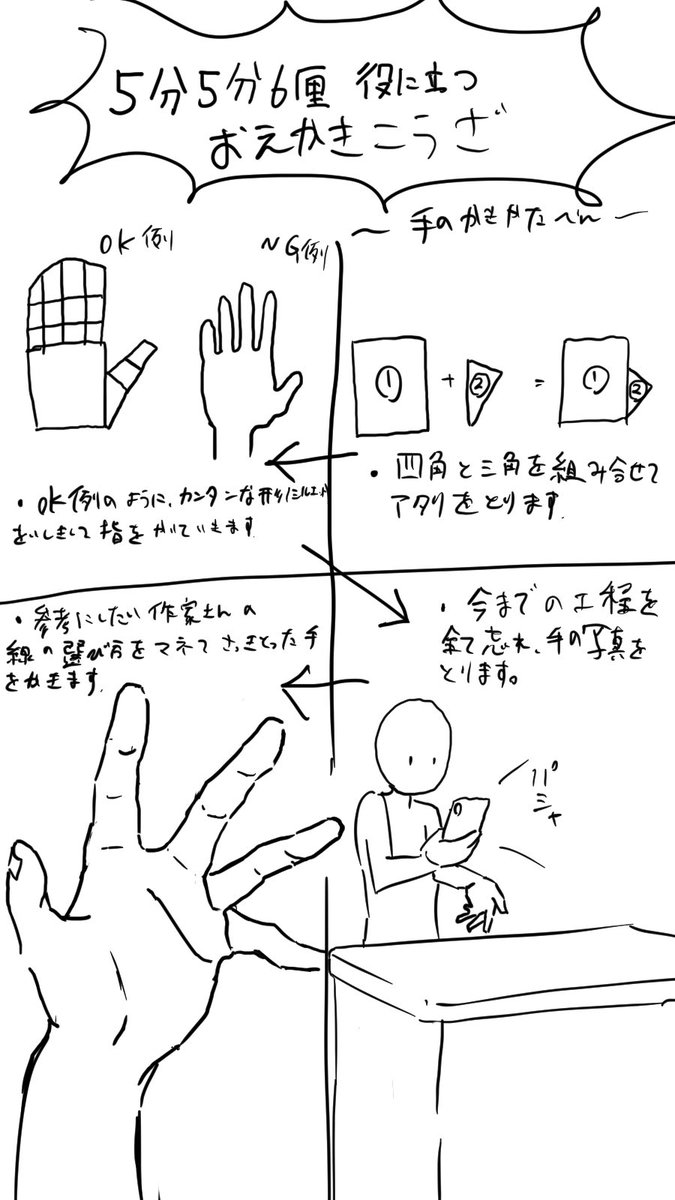 5分5分6厘 役に立つ
おえかきこうざ
〜 手のかきかたへん 〜
① + ② = ① ②
・四角と三角を組み合せて
アタリをとります.
OK例
NG例
・OK例のように、カンタンな形/シルエット
をいしきして指をかいていきます.
・今までの工程を
全て忘れ、手の写真を
とります。
パシャ
・参考にしたい作家さんの
線の選び方をマネてさっきとった手
をかきます.